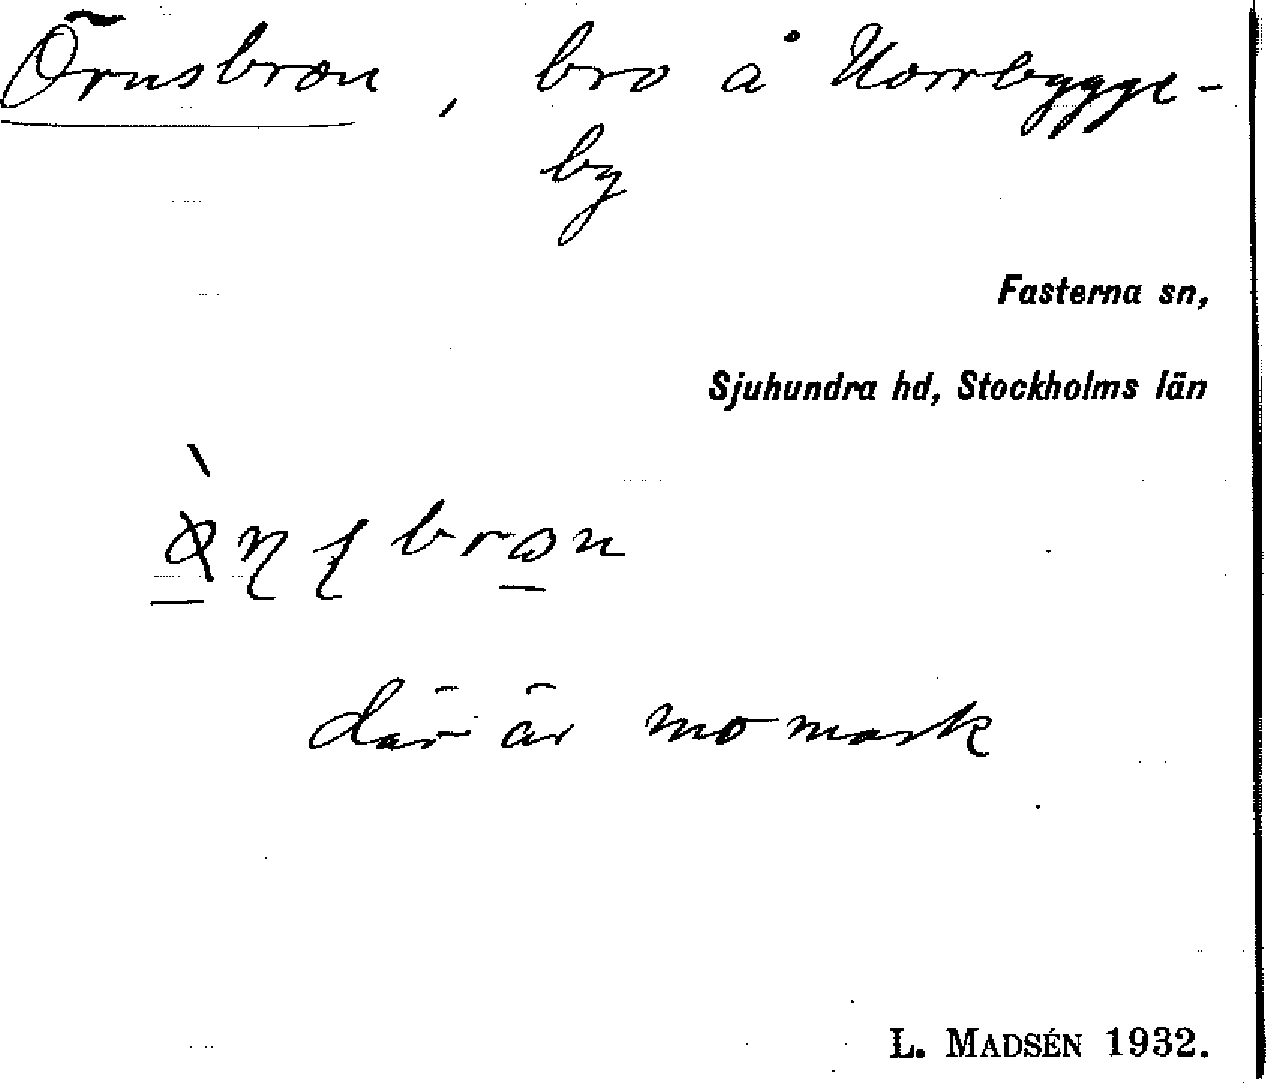 Örnsbron, bro å Norrbygge-
by
Fasterna sn,
Sjuhundra hd, Stockholms län
där är momark
L. MADSÉN 1932.